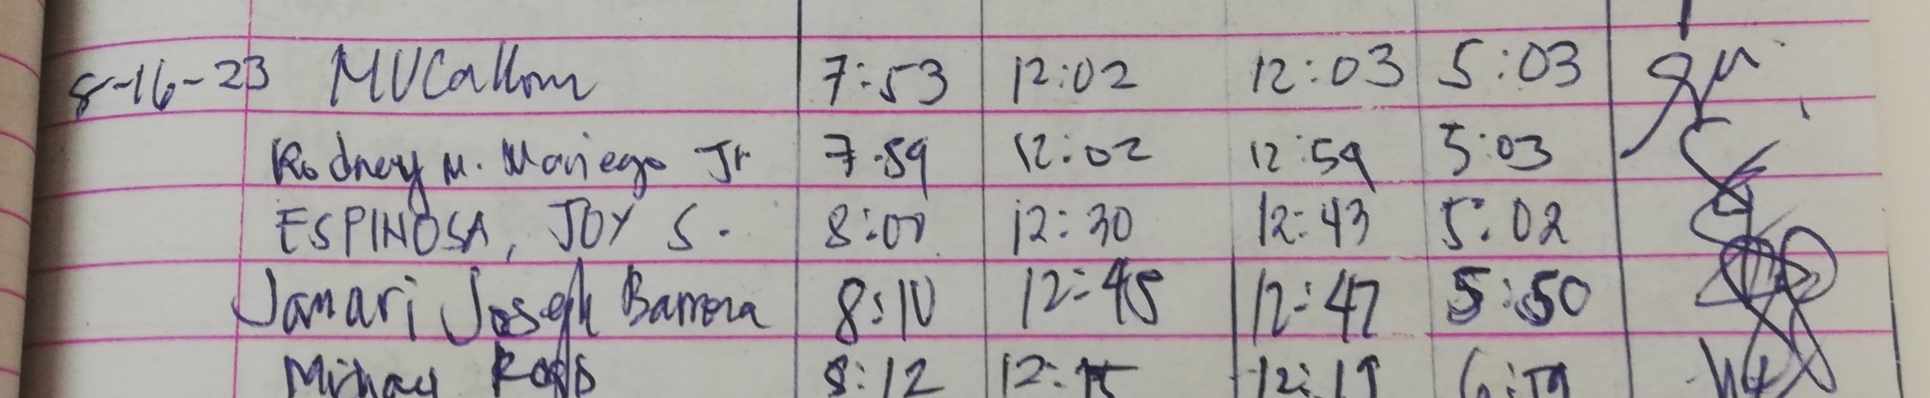 8-16-23 MVCallom 7:53 12:02 12:03 5:03
Rodney M. Mariego Jr 7:59 12:02 12:59 5:03
ESPINOSA, JOY S. 8:00 12:30 12:43 5:02
Janari Joseph Barrera 8:10 12:45 12:47 5:50
8:12 12:15 12:19